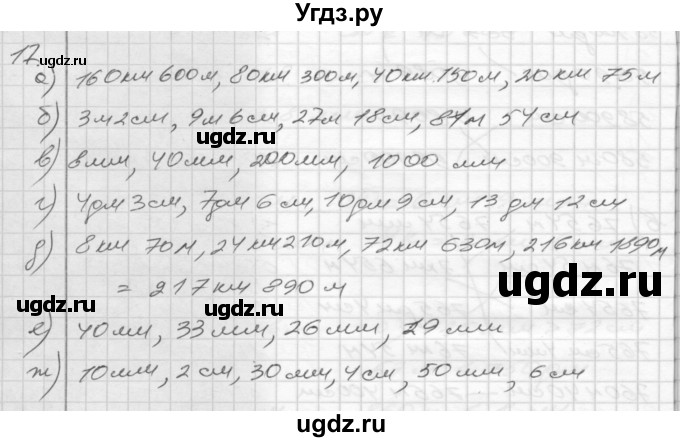 Угдз.ру
17.
а) 160км 600м, 80км 300м, 40км 150м, 20км 75м
б) 3м2см, 9м 6см, 27м 18см, 81м 54см
в) 8мм, 40мм, 200мм, 1000 мм
г) 4дм 3см, 7дм 6см, 10дм 9см, 13 дм 12см
д) 8км 70м, 24км210м, 72км 630м, 216км 1890м
= 217км 890м
е) 40мм, 33мм, 26мм, 19мм
ж) 10мм, 2см, 30мм, 4см, 50мм, 6см
ugdz.ru
ugdz.ru
ugdz.ru
ugdz.ru
ugdz.ru
ugdz.ru
ugdz.ru
ugdz.ru
ugdz.ru
ugdz.ru